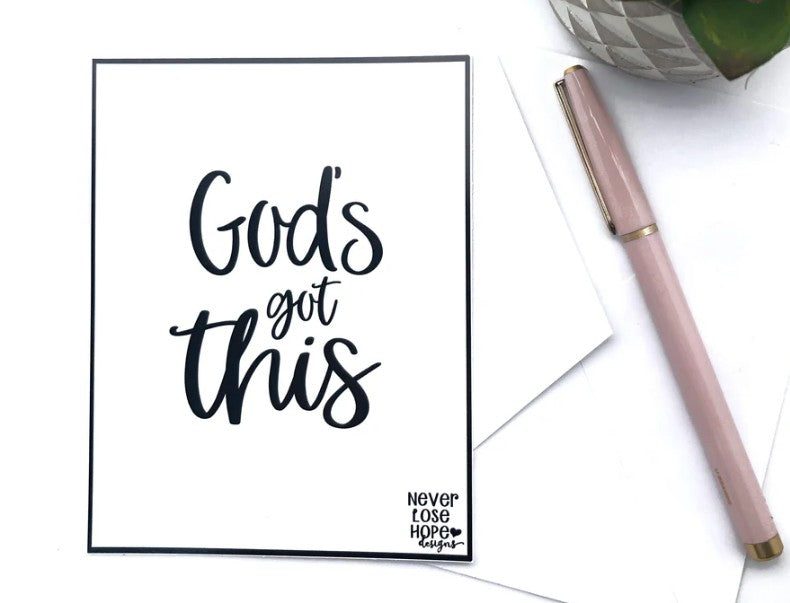 God's
got
this
NEVER
LOSE
HOPE
designs